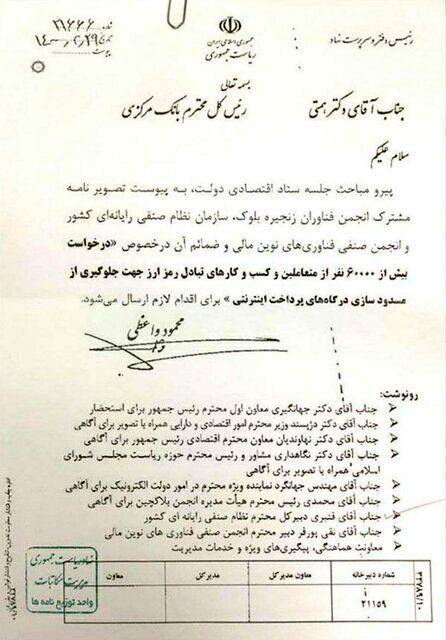 رئیس دفتر و سرپرست نهاد
جمهوری اسلامی ایران
ریاست جمهوری
شماره
تاریخ
پیوست
بسمه تعالی
جناب آقای دکتر همتی
رئیس کل محترم بانک مرکزی
سلام علیکم
پیرو مباحث جلسه ستاد اقتصادی دولت، به پیوست تصویر نامه
مشترک انجمن فناوران زنجیره بلوک، سازمان نظام صنفی رایانه‌ای کشور
و انجمن صنفی فناوری‌های نوین مالی و ضمائم آن درخصوص «درخواست
بیش از ۶۰۰۰۰ نفر از متعاملین و کسب و کارهای تبادل رمز ارز جهت جلوگیری از
مسدود سازی درگاه‌های پرداخت اینترنتی» برای اقدام لازم ارسال می‌شود.
محمود واعظی
رونوشت:
جناب آقای دکتر جهانگیری معاون اول محترم رئیس جمهور برای استحضار
جناب آقای دکتر دژپسند وزیر محترم امور اقتصادی و دارایی همراه با تصویر برای آگاهی
جناب آقای دکتر نهاوندیان معاون محترم اقتصادی رئیس جمهور برای آگاهی
جناب آقای دکتر نگاهداری مشاور و رئیس محترم حوزه ریاست مجلس شورای
اسلامی همراه با تصویر برای آگاهی
جناب آقای مهندس جهانگرد نماینده ویژه محترم در امور دولت الکترونیک برای آگاهی
جناب آقای محمدی رئیس محترم هیأت مدیره انجمن بلاکچین برای آگاهی
جناب آقای قنبری دبیرکل محترم نظام صنفی رایانه ای کشور
جناب آقای نقی پورفر دبیر محترم انجمن صنفی فناوری های نوین مالی
معاونت هماهنگی، پیگیری‌های ویژه و خدمات مدیریت
شماره دبیرخانه
معاون مدیرکل
مدیرکل
معاون
۲۱۱۵۹
نهاد ریاست جمهوری
مدیریت مکاتبات
واحد توزیع نامه ها